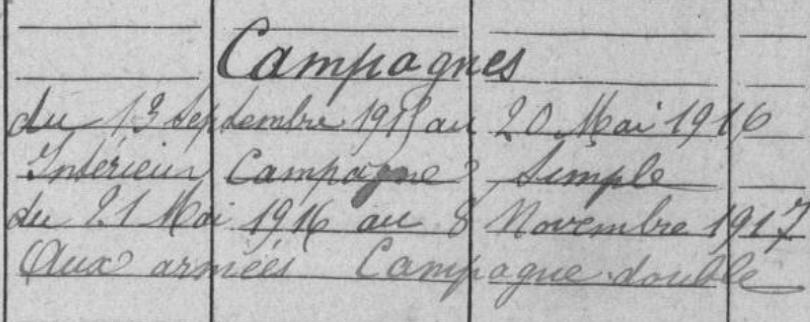 Campagnes
du 13 Septembre 1915 au 20 Mai 1916
Intérieur Campagne Simple
du 21 Mai 1916 au 8 Novembre 1917
Aux armées Campagne double